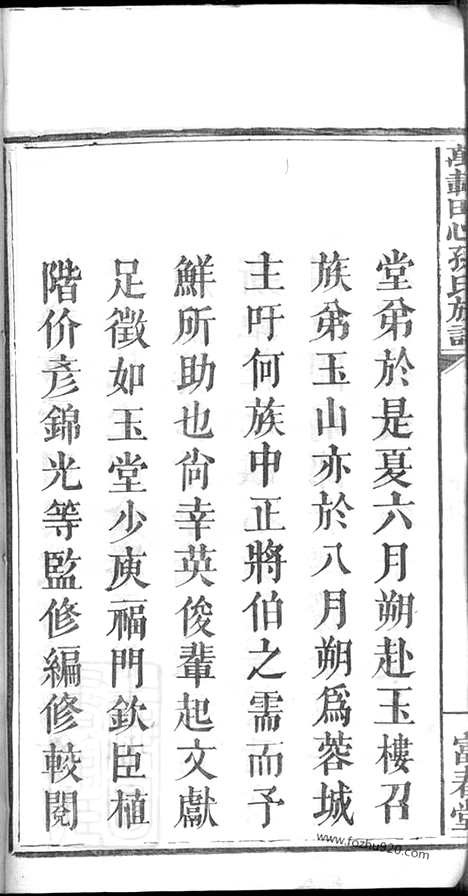 萬載田心孫氏族譜
富春堂
堂弟於是夏六月朔赴玉樓召
族弟玉山亦於八月朔為蓉城
主吁何族中正將伯之需而予
鮮所助也尚幸英俊輩起文獻
足徵如玉堂少庚福門欽臣植
階价彥錦光等監修編修較閱
www.fozhu920.com